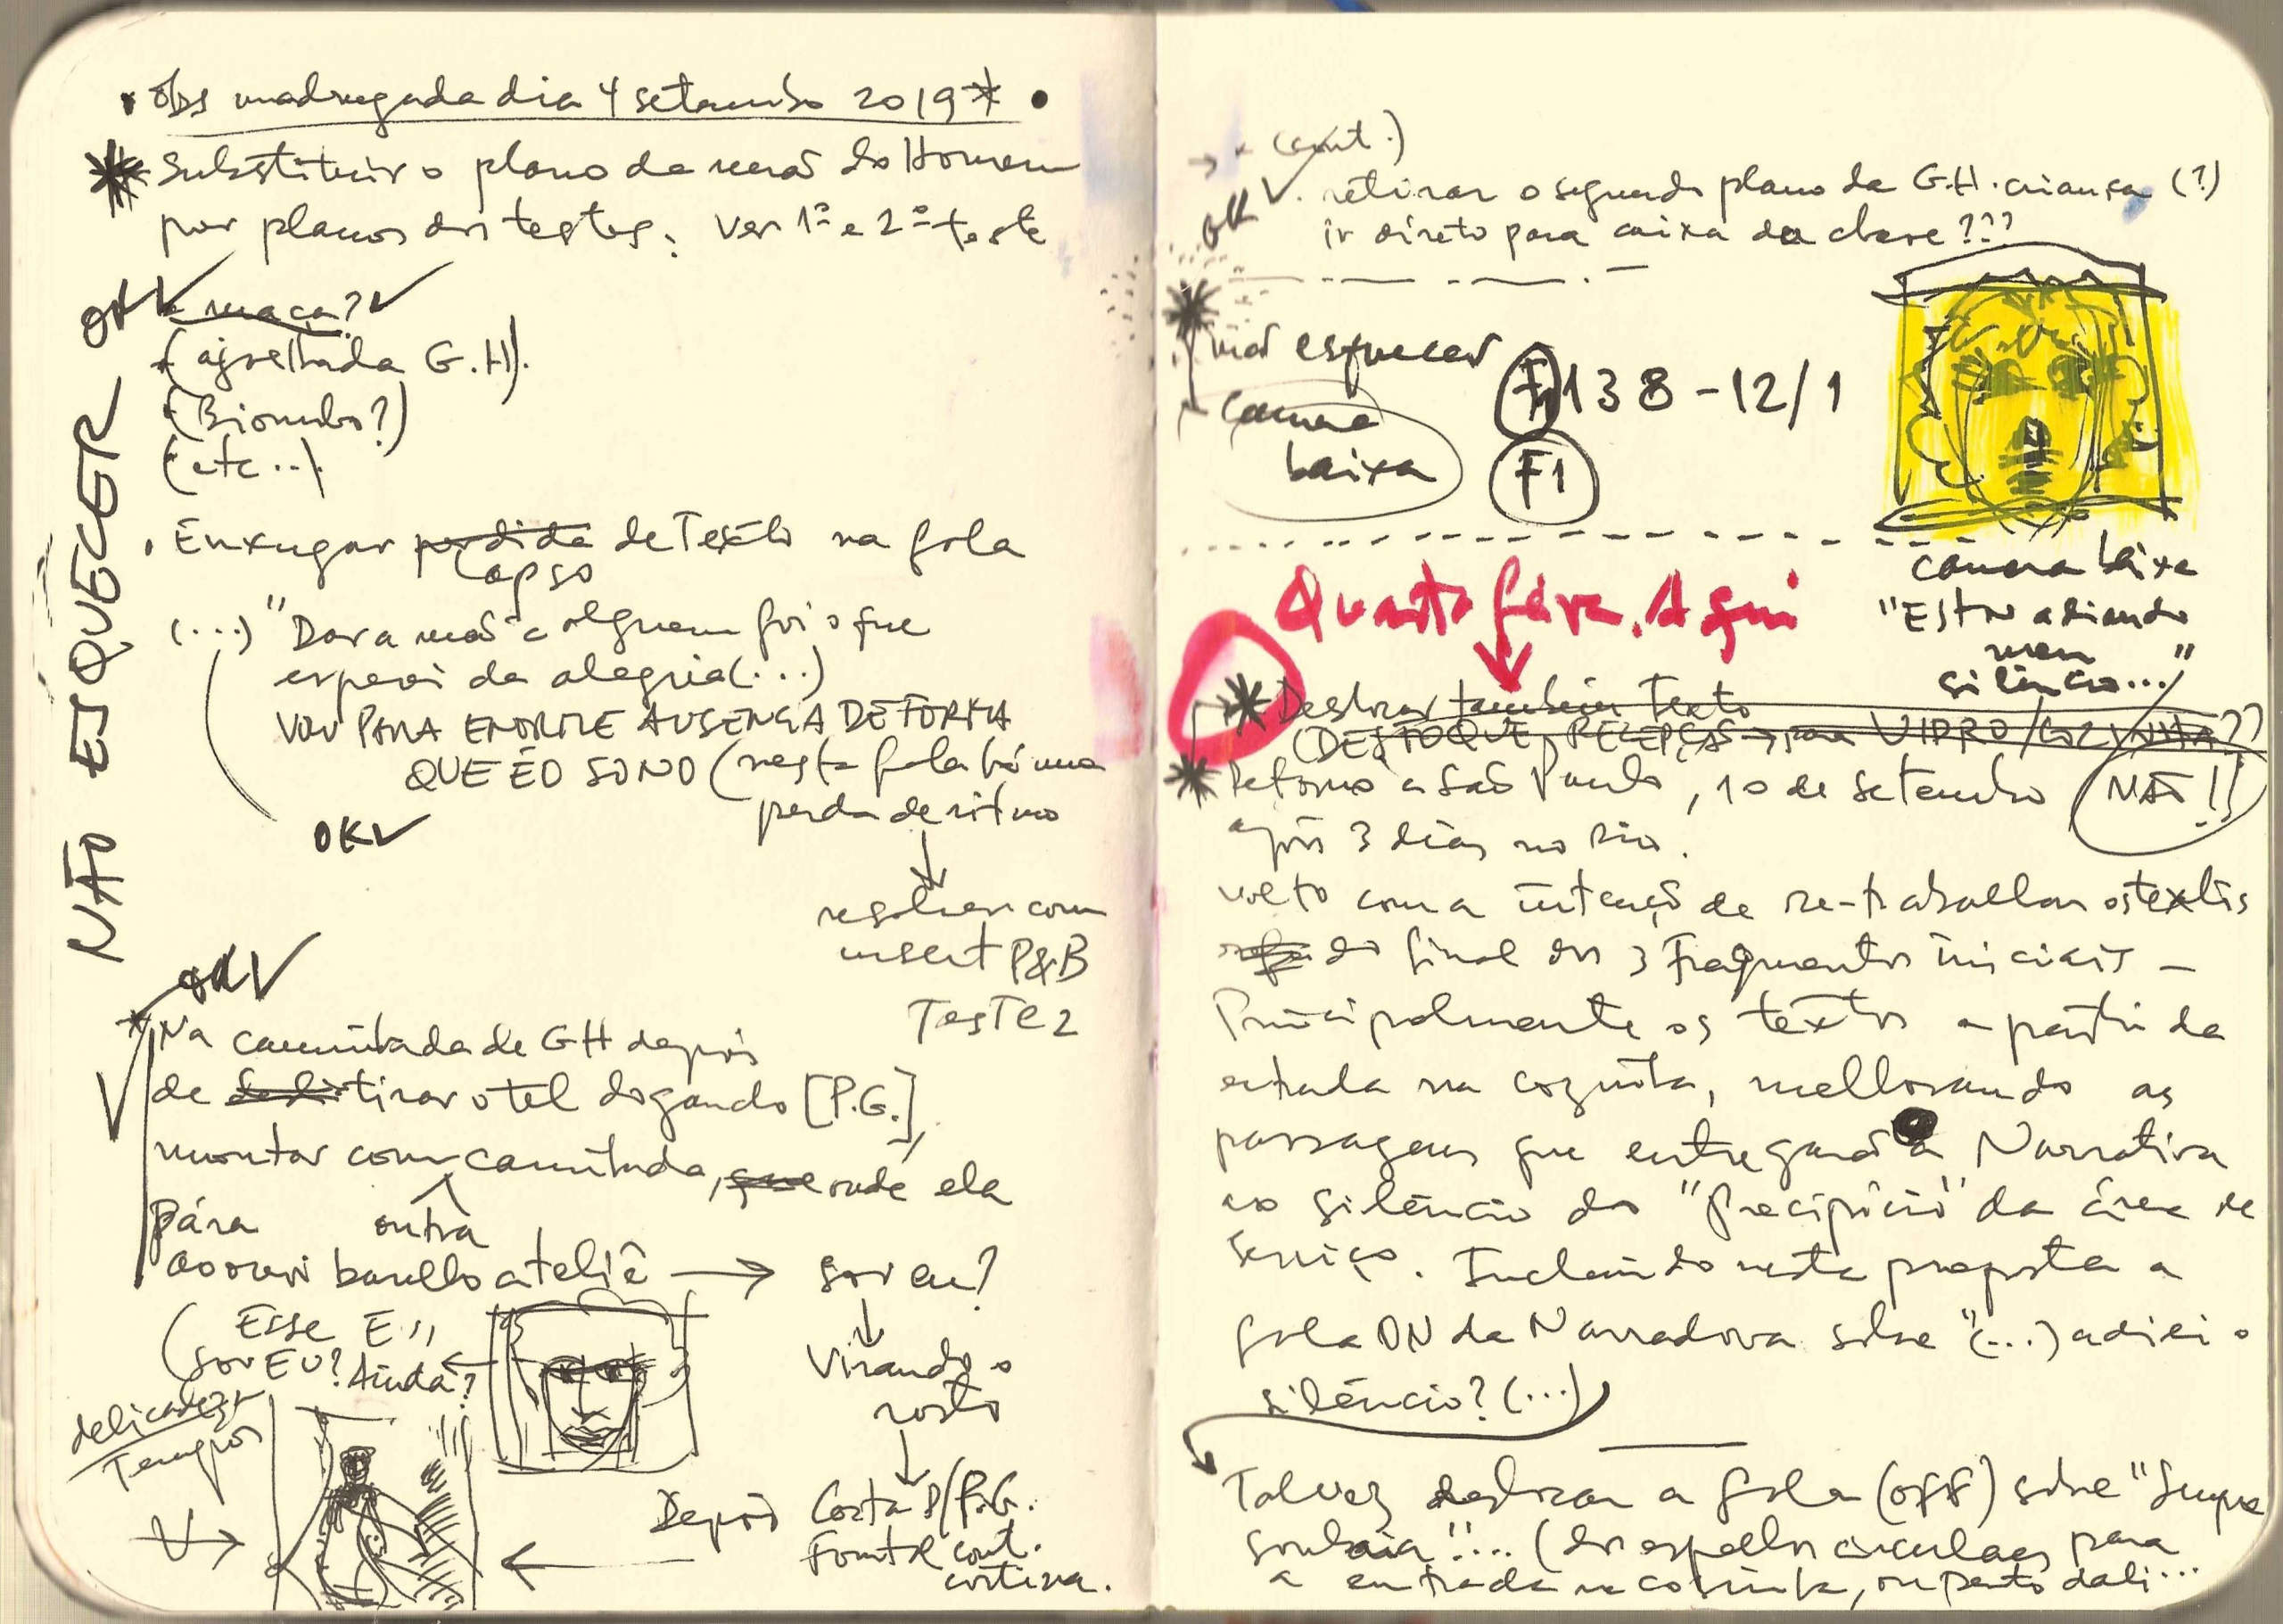 • Obs madrugada dia 4 setembro 2019* •
* Substituir o plano da mão do Homem
por planos dos testes: Ver 1º e 2º teste
NÃO ESQUECER
OK
maca?
(ajoelhada G.H).
(Biombo?)
(etc...)
. Enxugar perdida de Texto na fala
lapso
(...) "Dar a mão a alguem foi o que
esperei da alegria (...)
VOU PARA ENORME AUSENÇA DE FORMA
QUE É O SONO (nesta fala há uma
perda de ritmo
OK
resolver com
insert P&B
TesTe 2
OK
* Na caminhada de GH depois
de tirar o tel do gancho [P.G.],
montar com caminhada, que onde ela
outra
pára
ao ouvir barulho ateliê → sou eu?
(ESSE E"
SOU EU? Ainda?
Virando o
rosto
delicadeza
Tempos
Depois
Corta P/P.G.
Frontal cont.
cortina.
→ * (cont.)
OK
. retirar o segundo plano da G.H. criança (?)
ir direto para caixa da chave???
* não esquecer
camera
baixa
F1138-12/1
F1
camera baixa
"ESTOU adiando
meu
silêncio..."
Quarta feira. Aqui
* Deslocar também Texto
(DESTOQUE, RECEPÇÃO → para VIDRO/COZINHA??
NÃO!!
* Retorno a São Paulo, 10 de setembro
após 3 dias no Rio.
volto com a intenção de re-trabalhar os textos
do final dos 3 Fragmentos iniciais —
Principalmente os textos a partir da
entrada na cozinha, melhorando as
passagens que entregarão a Narrativa
ao silêncio do "Precipício" da área de
serviço. Incluindo nesta proposta a
fala ON da Narradora sobre "(...) adiei o
silêncio? (...)
Talvez deslocar a fala (off) sobre "Sempre
souberia"!... (dos espelhos circulares para
a entrada na cozinha, ou perto dali...